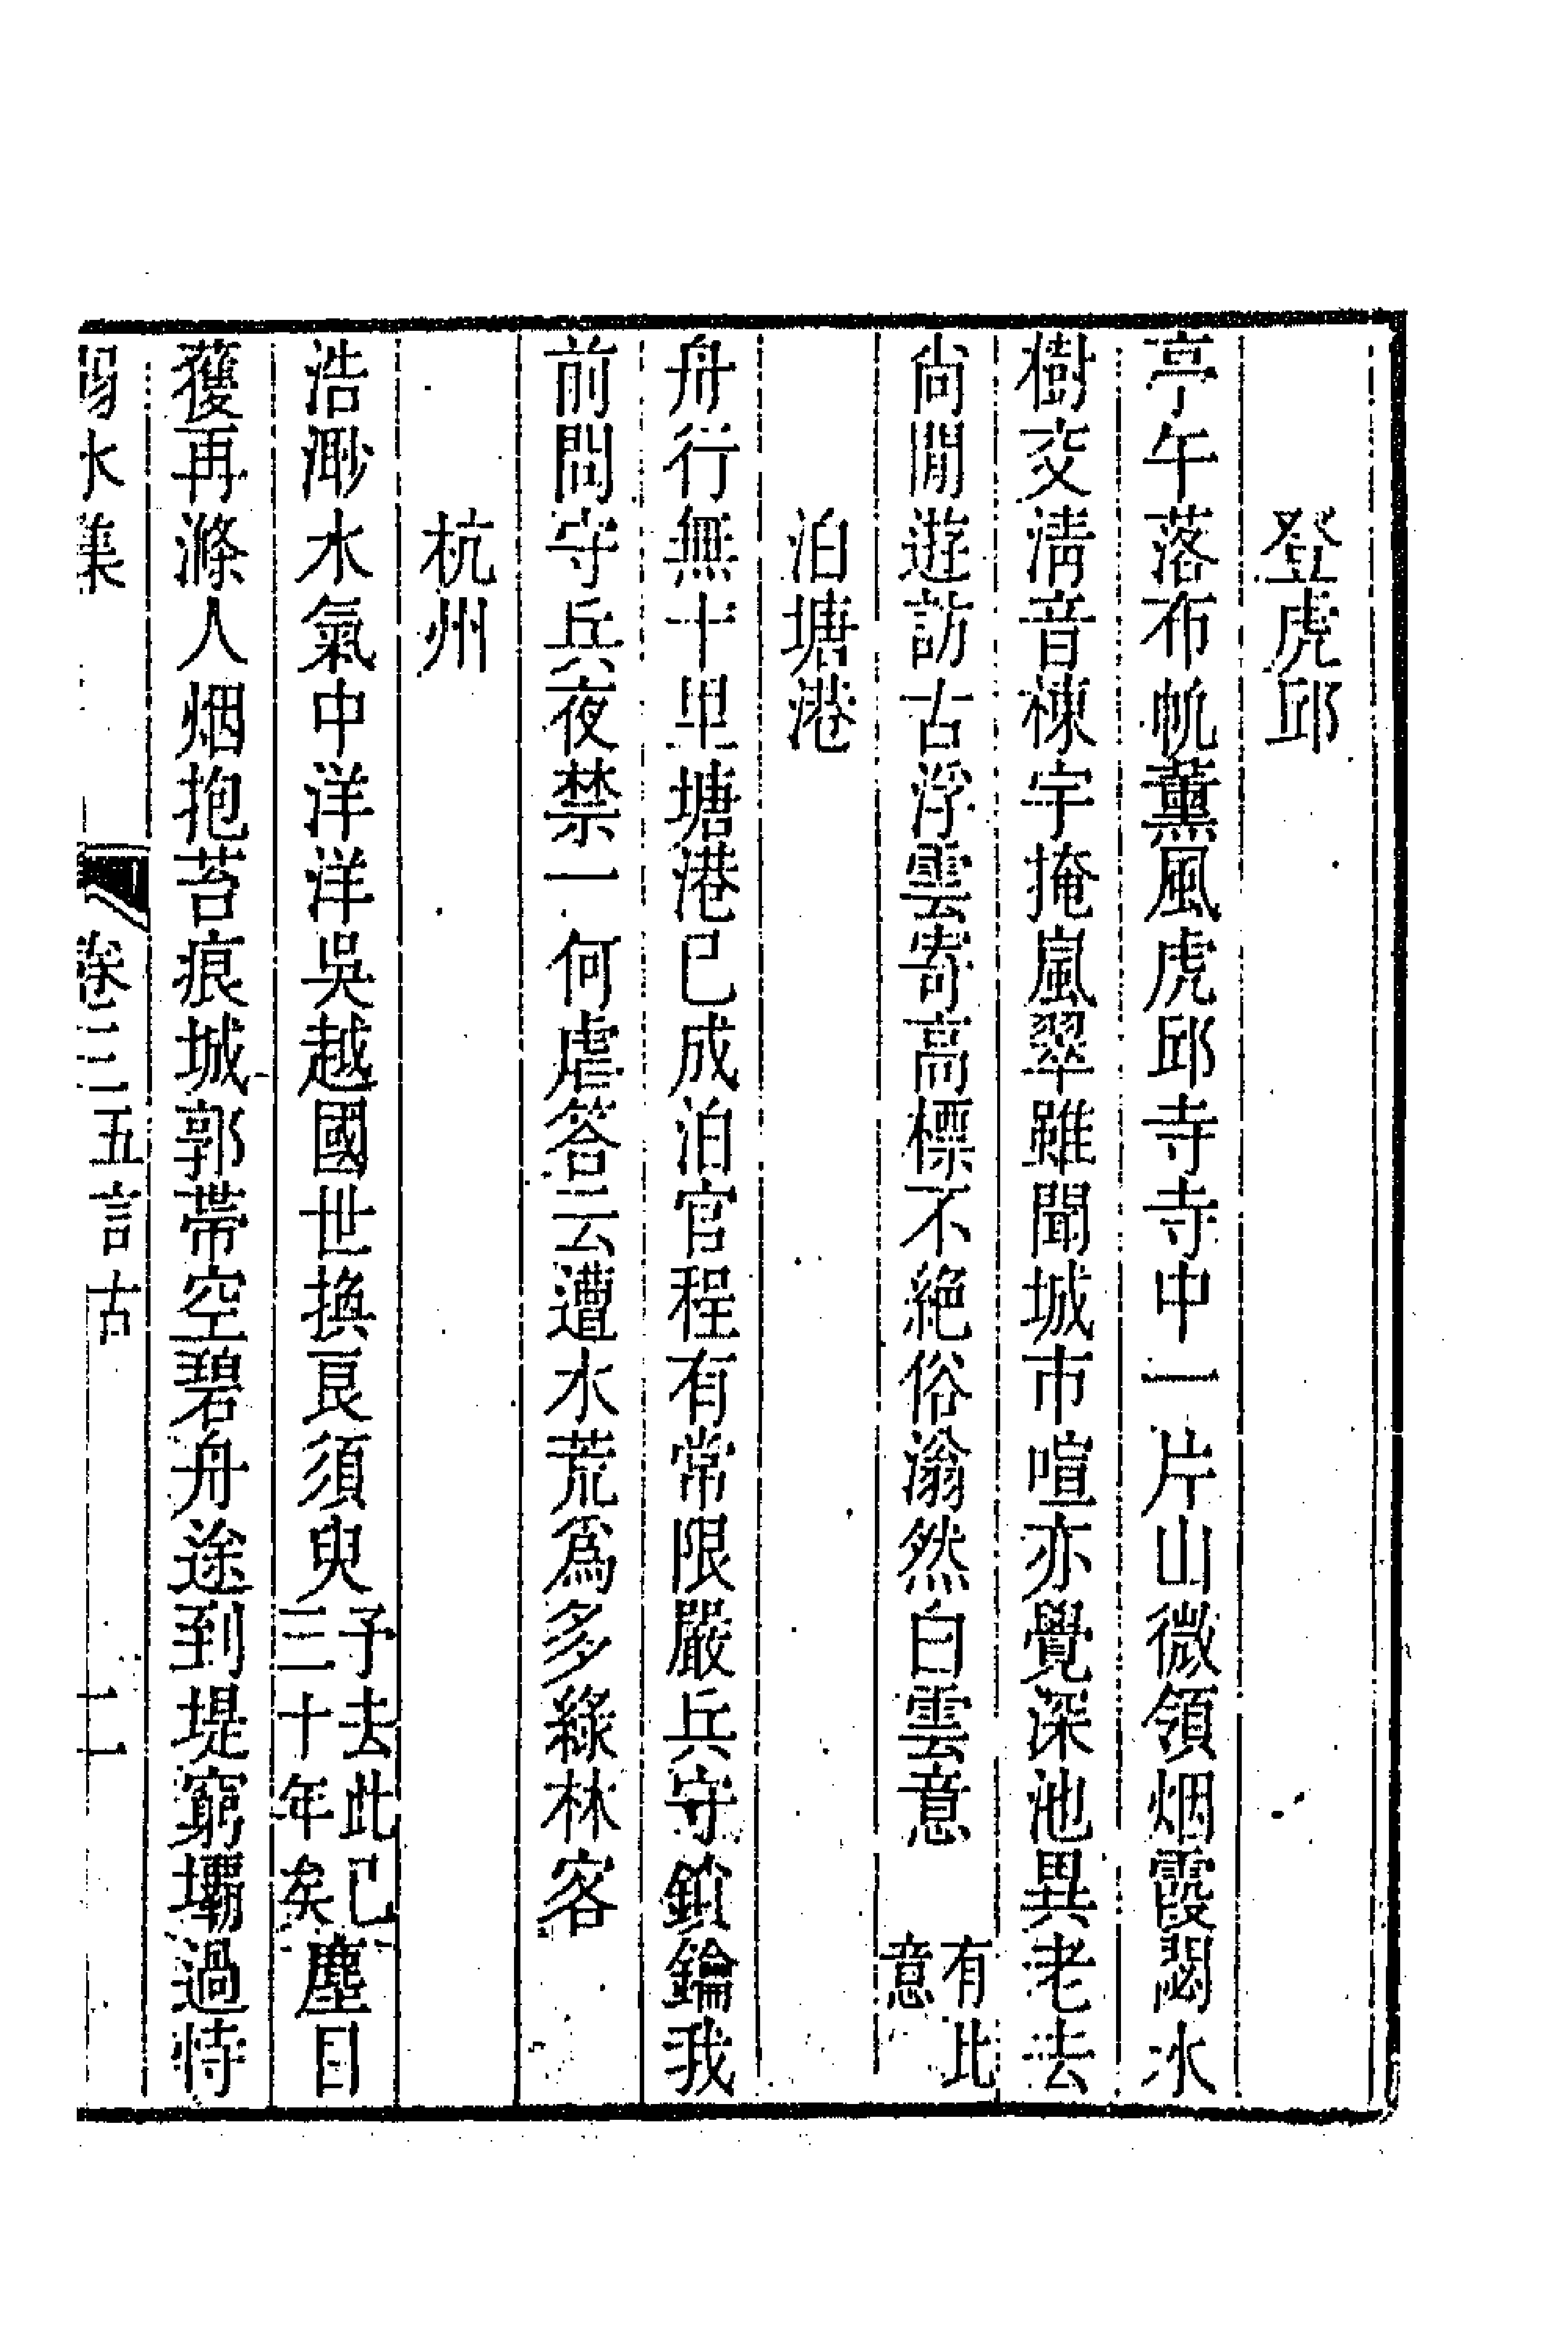 登虎邱
亭午落布帆薰風虎邱寺寺中一片山微領烟霞閟氷
樹交淸音棟宇掩嵐翠雖聞城市喧亦覺深池異老去
尙閒遊訪古浮雲寄高標不絶俗滃然白雲意有此意
泊塘港
舟行無十里塘港已成泊官程有常限嚴兵守鎖鑰我
前問守兵夜禁一何虐答云遭水荒爲多綠林客
杭州
浩渺水氣中洋洋吳越國世換良須臾予去此已三十年矣塵目
獲再滌人烟抱苔痕城郭帶空碧舟途到堤窮壩過恃
水集 卷三五言古 十一